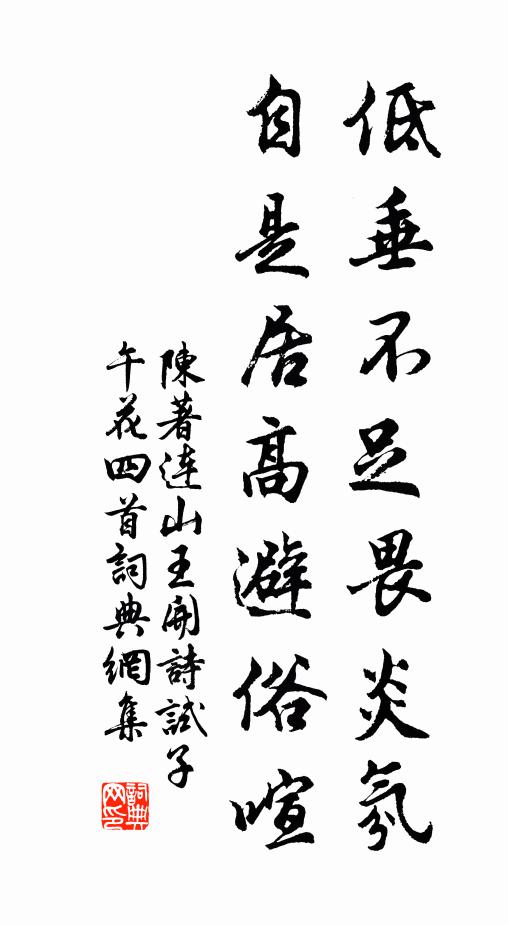 低垂不足畏炎氛
自是居高避俗喧
陳著連山王開詩試子
午花四首詞典網集
詞典网印